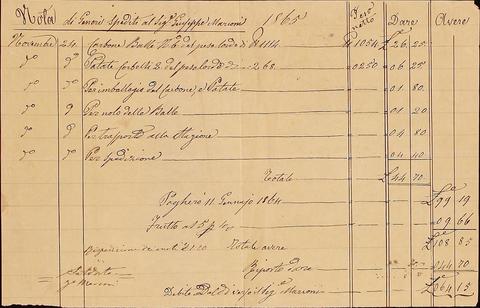 Nota di Generi Spediti al Sig.r Giuseppe Marioni 1865 Peso Netto Dare Avere
Novembre 24. Carbone Balle N. 6 del peso lordo di lb 1114 lb 1054 £ 26 25
do do Patate Corbelli 2 del peso lordo di 268 0250 06 25
do do Per imballagio del Carbone, e Patate 01 80
do do Per nolo delle Balle 01 20
do do Per trasporto alla Stazione 04 80
do do Per spedizione 04 40
Totale £ 44 70
Pagherò 11 Gennajo 1864 £ 99 19
Frutto al 5 p % 09 66
£ 108 85
Totale avere
044 70
Riporto dare
£ 064 15
Debito Marioni